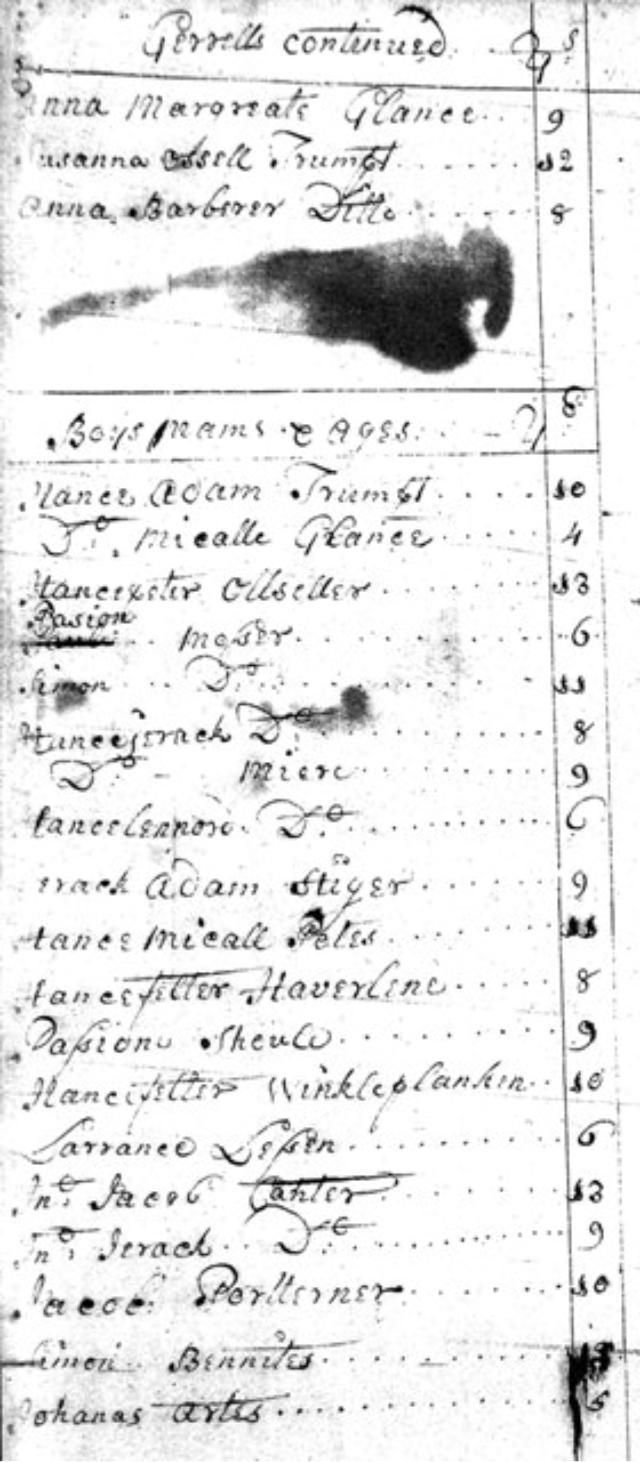 Gerrells continued Ys
Anna Margreate Glance 9
Susanna Trumpt 12
Anna Barberer Ditto 8
Boys Nams & Ages Ys
Hance Adam Trumpt 10
Do. Micalle Glance 4
Hancepeter Ollseller 13
Pasion
Moser 6
Simon Do. 11
Hancejerack Do. 8
Do. Miere 9
Hancelennord Do. 6
erack Adam Stiger 9
Hance Micall Peles 11
Hancefelter Haverlene 8
Passione Sheule 9
Hancefelter Winkleplanken 10
Larrance Lessen 6
Jno. Jacob Canter 13
Jno. Jerack Do. 9
Jacob Portterner 10
Simon Bennites
Johanas Artes 5